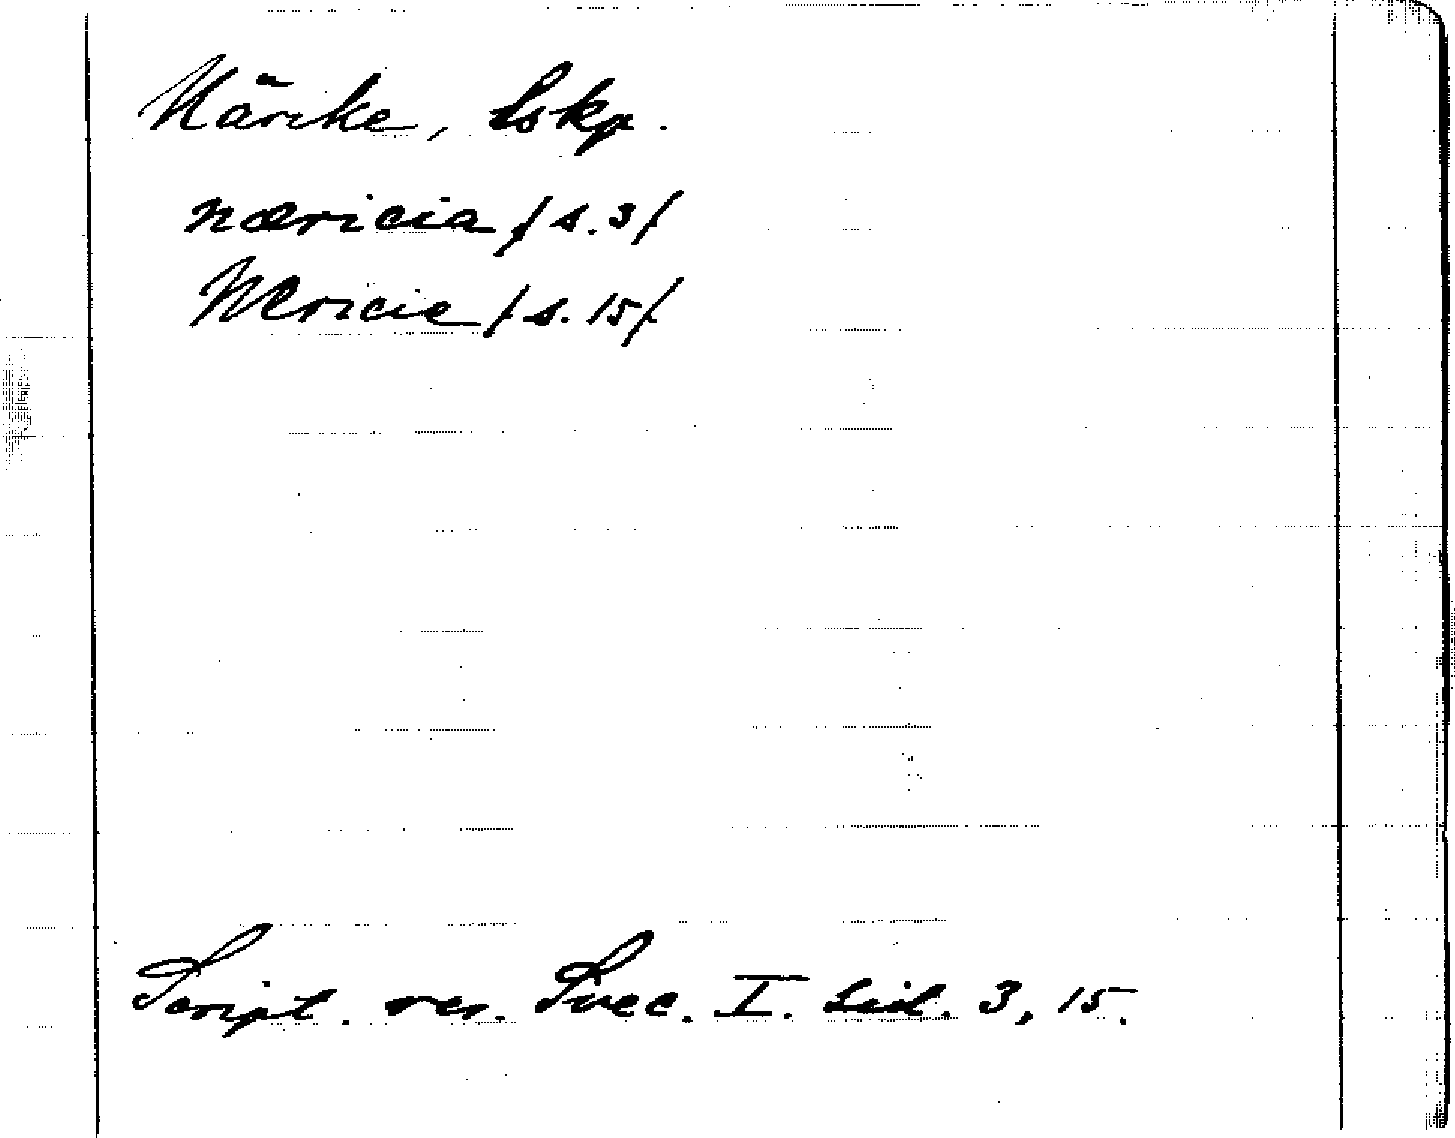 Närike, Lskp.
næricia /s. 3/
Nericie /s. 15/
Script. rer. Svec. I. Sid. 3, 15.